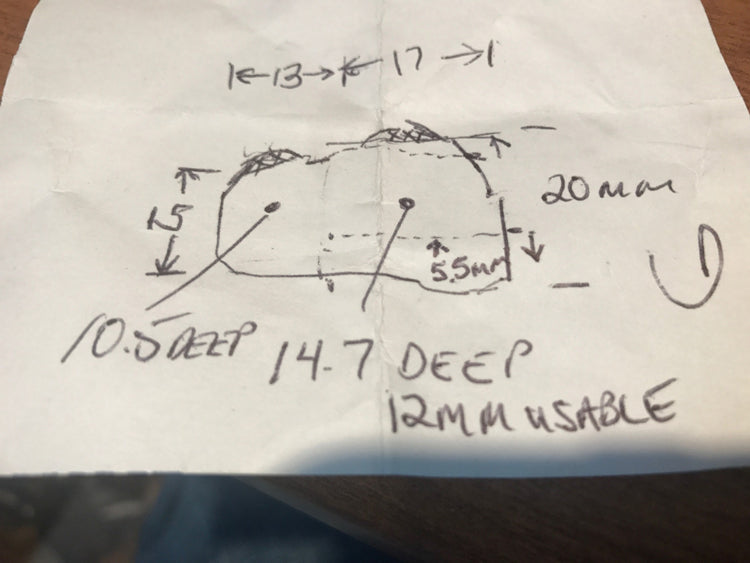 13 17
15
20mm
5.5mm
10.5 DEEP
14.7 DEEP
12MM USABLE